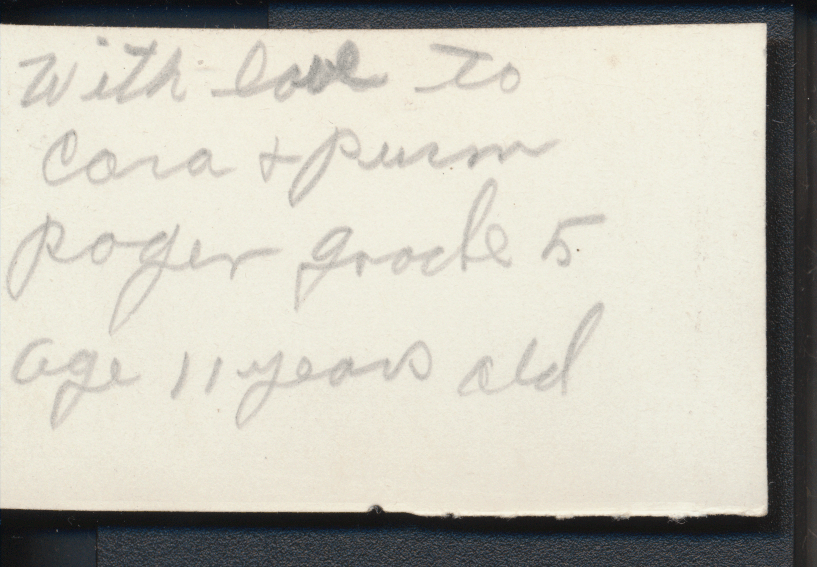 With love to
Cora &
Roger grade 5
age 11 years old